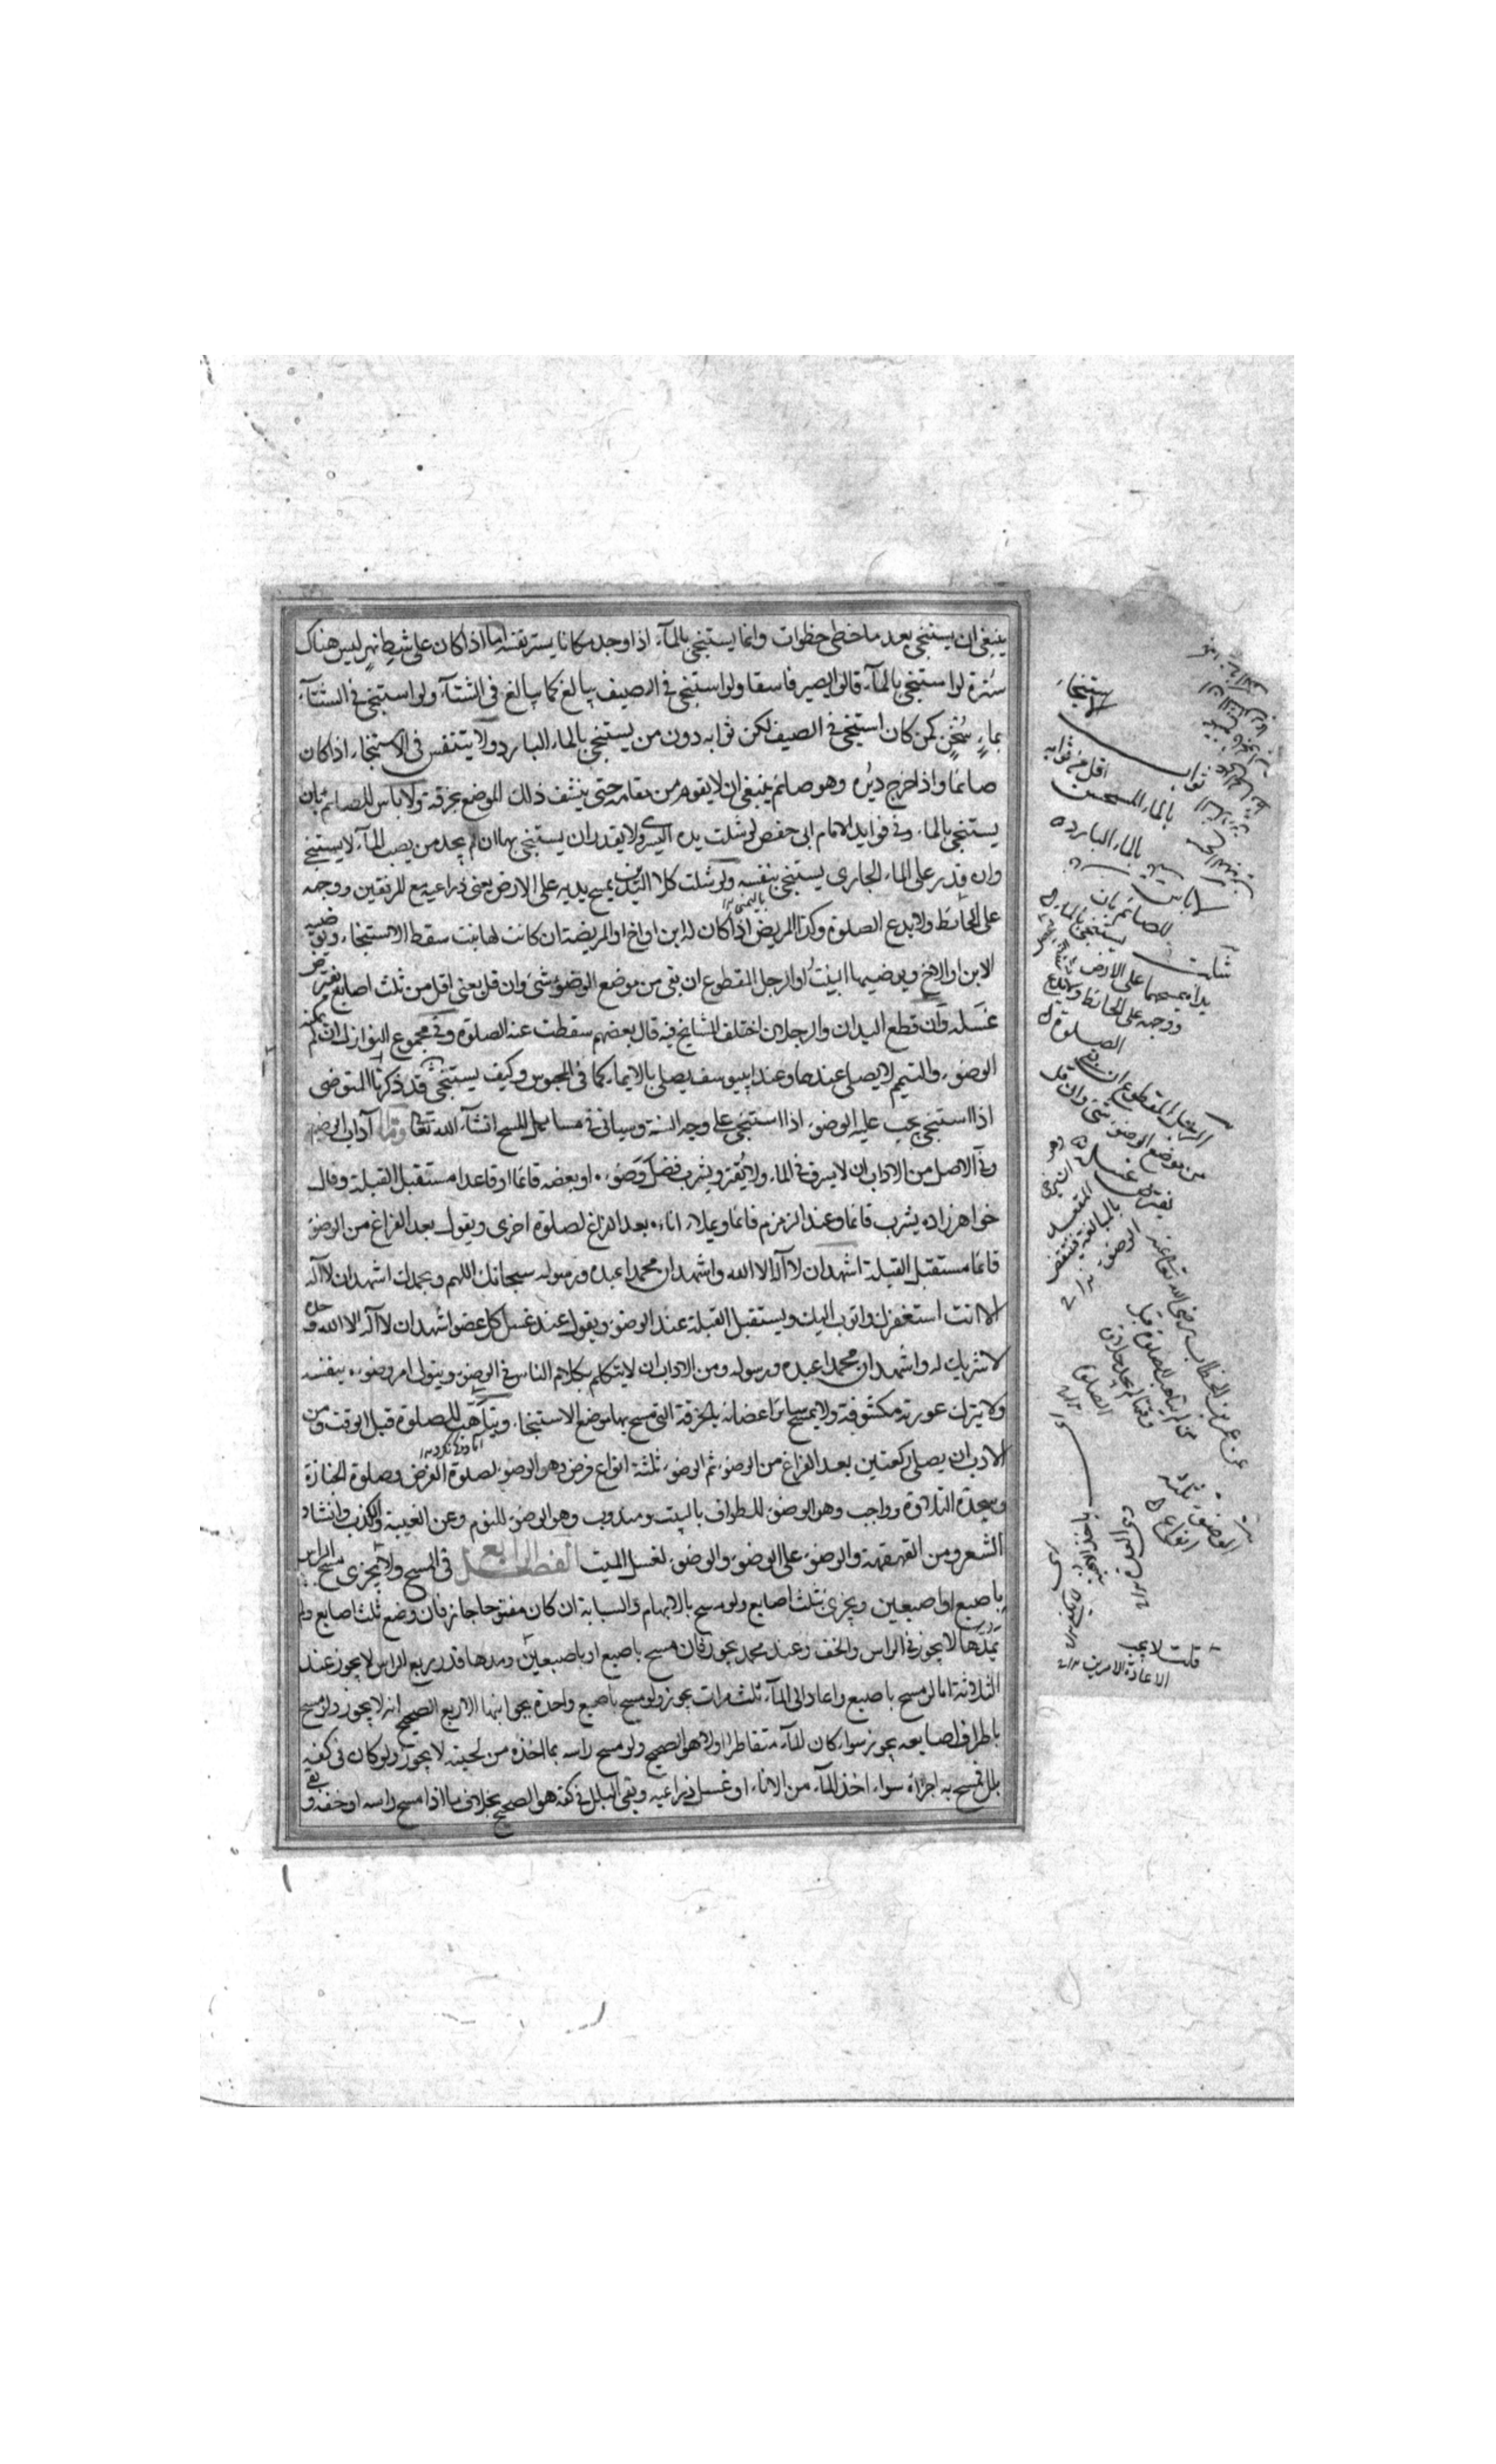 ينبغي ان يستنجي بعد ما خطى خطوات وانما يستنجي بالمآء اذا وجد مكانا يستر نفسه اما اذا كان على شط نهر ليس هناك
سترة لو استنجى بالمآء قالوا يصير فاسقا ولو استنجى في الصيف يبالغ كما يبالغ في الشتآء ولو استنجى في الشتآء
بماءٍ سُخنٍ كمن كان استنجى في الصيف لكن ثوابه دون من يستنجي بالماء البارد ولا يتنفس في الاستنجاء اذا كان
صائما واذا خرج دبره وهو صائم ينبغي ان لا يقوم من مقامه حتى ينشف ذلك الموضع بخرقة ولا باس للصائم بان
يستنجي بالماء وفي فوايد الامام ابي حفص لو شلت يده اليسرى ولا يقدر ان يستنجي بها ان لم يجد من يصب المآء لا يستنجي
وان قدر على الماء الجاري يستنجي بنفسه ولو شلت كلا اليدين يمسح يديه على الارض يعني ذراعيه مع المرفقين ووجهه
على الحائط ولا يدع الصلوة وكذا المريض اذا كان له ابن او اخ او المريضة ان كانت لها بنت سقط الاستنجاء ويوضيه
الابن او الاخ ويوضيها البنت او الرجل المقطوع ان بقى من موضع الوضوء شئ وان قل يعني اقل من ثلث اصابع يفترض
غسله وان قطع اليدان والرجلان اختلف المشايخ فيه قال بعضهم سقطت عنه الصلوة وفي مجموع النوازل ان لم يمكنه
الوضوء والتيمم لا يصلي عندهما وعند ابييوسف يصلي بالايماء كما في المحبوس وكيف يستنجي قد ذكرنا المتوضى
اذا استنجى يجب عليه الوضوء اذا استنجى على وجه السنة وسياتي في مسايل المسح انشآء الله تعالى واما آداب الوضوء
وفي الاصل من الاداب ان لا يسرف في الماء ولا يقتر ويشرب فضل وَضوءه او بعضه قائما او قاعدا مستقبل القبلة وقال
خواهر زاده يشرب قائما وعند الزمزم قائما ويملاء اناءه بعد الفراغ لصلوة اخرى ويقول بعد الفراغ من الوضوء
قائما مستقبل القبلة اشهد ان لا آله الا الله واشهد ان محمدا عبده ورسوله سبحانك اللهم وبحمدك اشهد ان لا آله
الا انت استغفرك واتوب اليك ويستقبل القبلة عند الوضوء ويقول عند غسل كل عضو اشهد ان لا آله الا الله وحده
لا شريك له واشهد ان محمدا عبده ورسوله ومن الاداب ان لا يتكلم بكلام الناس في الوضوء ويتولى امر وضوءه بنفسه
ولا يترك عورته مكشوفة ولا يمسح سائر اعضائه بالخرقة التي مسح بها موضع الاستنجاء ويتاهب للصلوة قبل الوقت ومن
الادب ان يصلي ركعتين بعد الفراغ من الوضوء ثم الوضوء ثلثة انواع فرض وهو الوضوء لصلوة الفرض وصلوة الجنازة
وسجدة التلاوة وواجب وهو الوضوء للطواف بالبيت ومندوب وهو الوضوء للنوم وعن الغيبة والكذب وانشاد
الشعر ومن القهقهة والوضوء على الوضوء والوضوء لغسل الميت الفصل الرابع في المسح ولا يجزى مسح الراس
باصبع او اصبعين ويجزى بثلث اصابع ولو مسح بالابهام والسبابة ان كان مفتوحا جاز فان وضع ثلث اصابع ولم
يمدها لا يجوز في الراس والخف وعند محمد يجوز فان مسح باصبع او باصبعين ومدها قدر ربع الراس لا يجوز عند
الثلاثة اما لو مسح باصبع واعاد الى المآء ثلث مرات يجوز ولو مسح باصبع واحدة بجوانبها الاربع الصحيح انه لا يجوز ولو مسح
باطراف اصابعه يجوز سواء كان المآء متقاطرا او لا هو الصحيح ولو مسح راسه بما اخذه من لحيته لا يجوز ولو كان في كفه
بلل فمسح به اجزاه سواء اخذ المآء من الاناء او غسل ذراعيه وبقى البلل في كفه هو الصحيح بخلاف ما اذا مسح راسه او خفه وبقى
الاستنجاء
بالماء المسخن
ثواب اقل من ثوابه
بالماء البارد
لا باس
للصائم بان
يستنجي بالماء
شلت
يداه يمسحهما على الارض
ووجهه على الحائط ولا يدع
الصلوة
الرجل المقطوع ان بقى
من موضع الوضوء شئ وان قل
يفترض غسله
عن عمر بن الخطاب رضي الله تعالى عنه
الوضوء ثلثة
انواع
قلت لا يجب
الاعادة